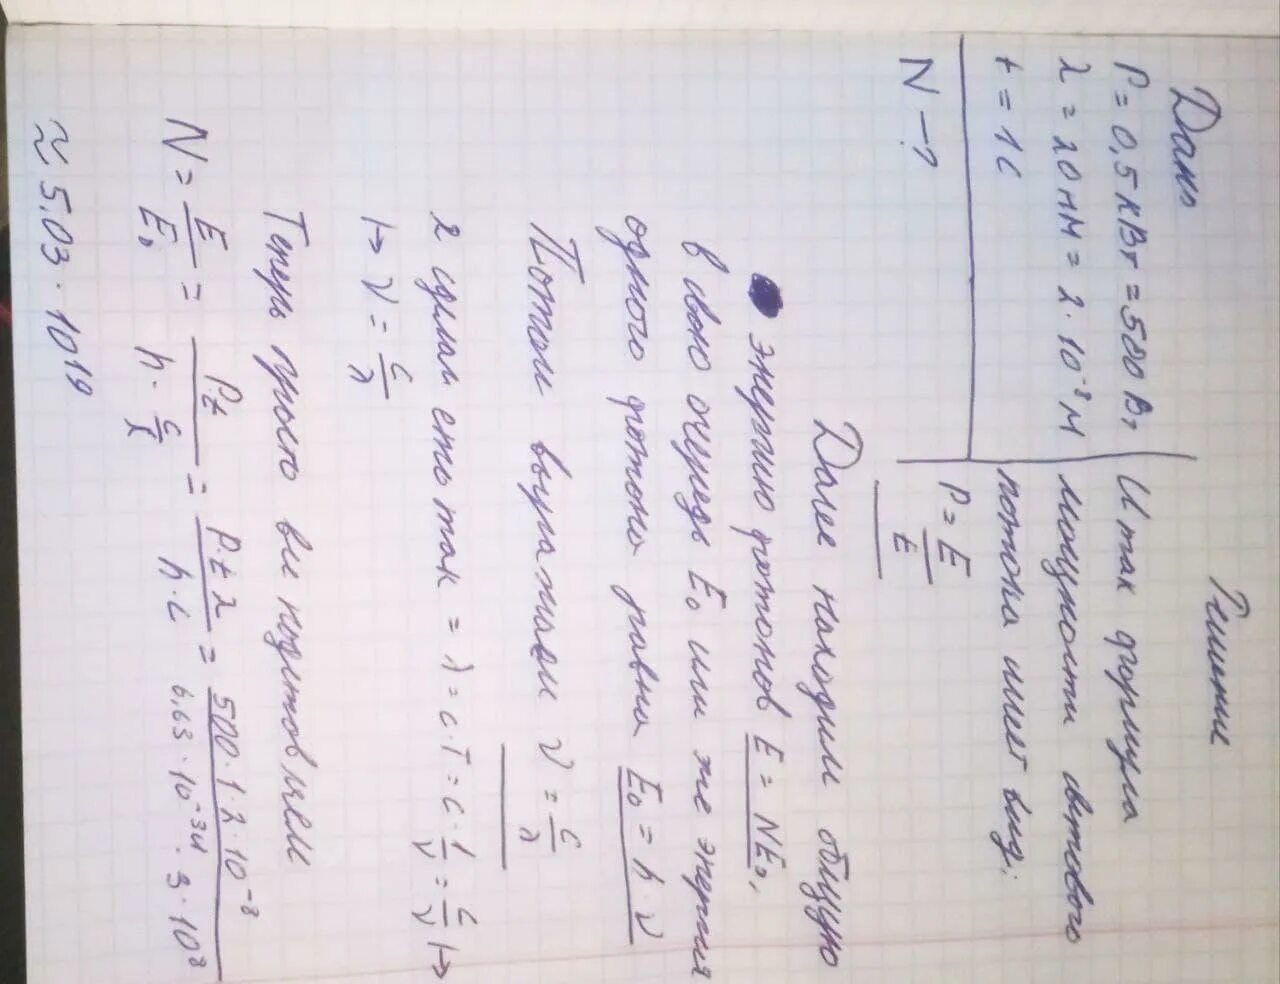 Дано
P = 0,5 кВт = 500 Вт
λ = 20 нм = 2 · 10⁻⁸ м
t = 1 с
N – ?
Решение
Итак формула
мощности светового
потока имеет вид:
P = E/t
Далее находим общую
энергию фотонов E = NE₀,
в свою очередь E₀ или же энергия
одного фотона равна E₀ = h · ν
Потом выражаем ν = c/λ
я сделал это так = λ = c · T = c · 1/ν = c/ν →
→ ν = c/λ
Теперь просто все подставляем
N = E/E₀ = P·t / h · c/λ = P·t·λ / h·c = 500 · 1 · 2 · 10⁻⁸ / 6,63 · 10⁻³⁴ · 3 · 10⁸
≈ 5,03 · 10¹⁹